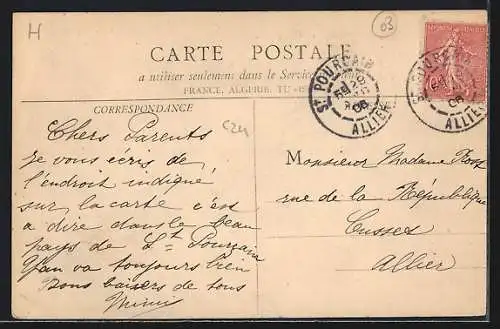 H
03
CARTE POSTALE
a utiliser seulement dans le Service
FRANCE, ALGERIE, TU
CORRESPONDANCE
ST POURÇAIN
ALLIER
ST POURÇAIN
ALLIER
Chers Parents
Je vous écris de
l'endroit indiqué
sur la carte c'es
a dire dans le beau
pays de St Pourçain
va toujours bien
Bons baisers de tous
Mimi
Monsieur Madame
rue de la République
Cusset
Allier